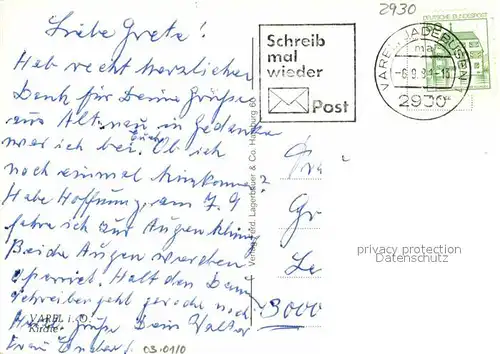 2930
DEUTSCHE BUNDESPOST
Schreib
mal
wieder
Post
VAREL, JADEBUSEN 1
2930
Liebe Greta!
Hab recht herzlichen
Dank für Deine Grüße
aus Alt
in Gedanken
war ich bei Euch. Ob ich
noch einmal hinkomme?
Habe Hoffnung, am 7.9
fahre ich zur Augenklinik
Beide Augen werden
operiert. Halt den Daum
Schreiben geht gerade noch
Herzl. Grüße Dein Walter
Verlag Ferd. Lagerbauer & Co. Hamburg 65
Gr
3000
privacy protection
Datenschutz
VAREL i. O.
Kirche
03.01/0